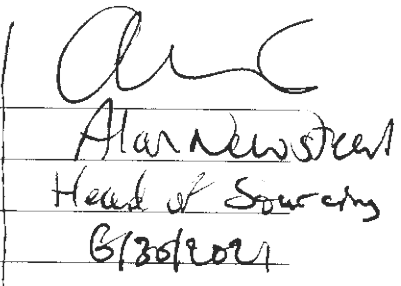 Alan Newstead
Head of Sourcing
6/30/2021